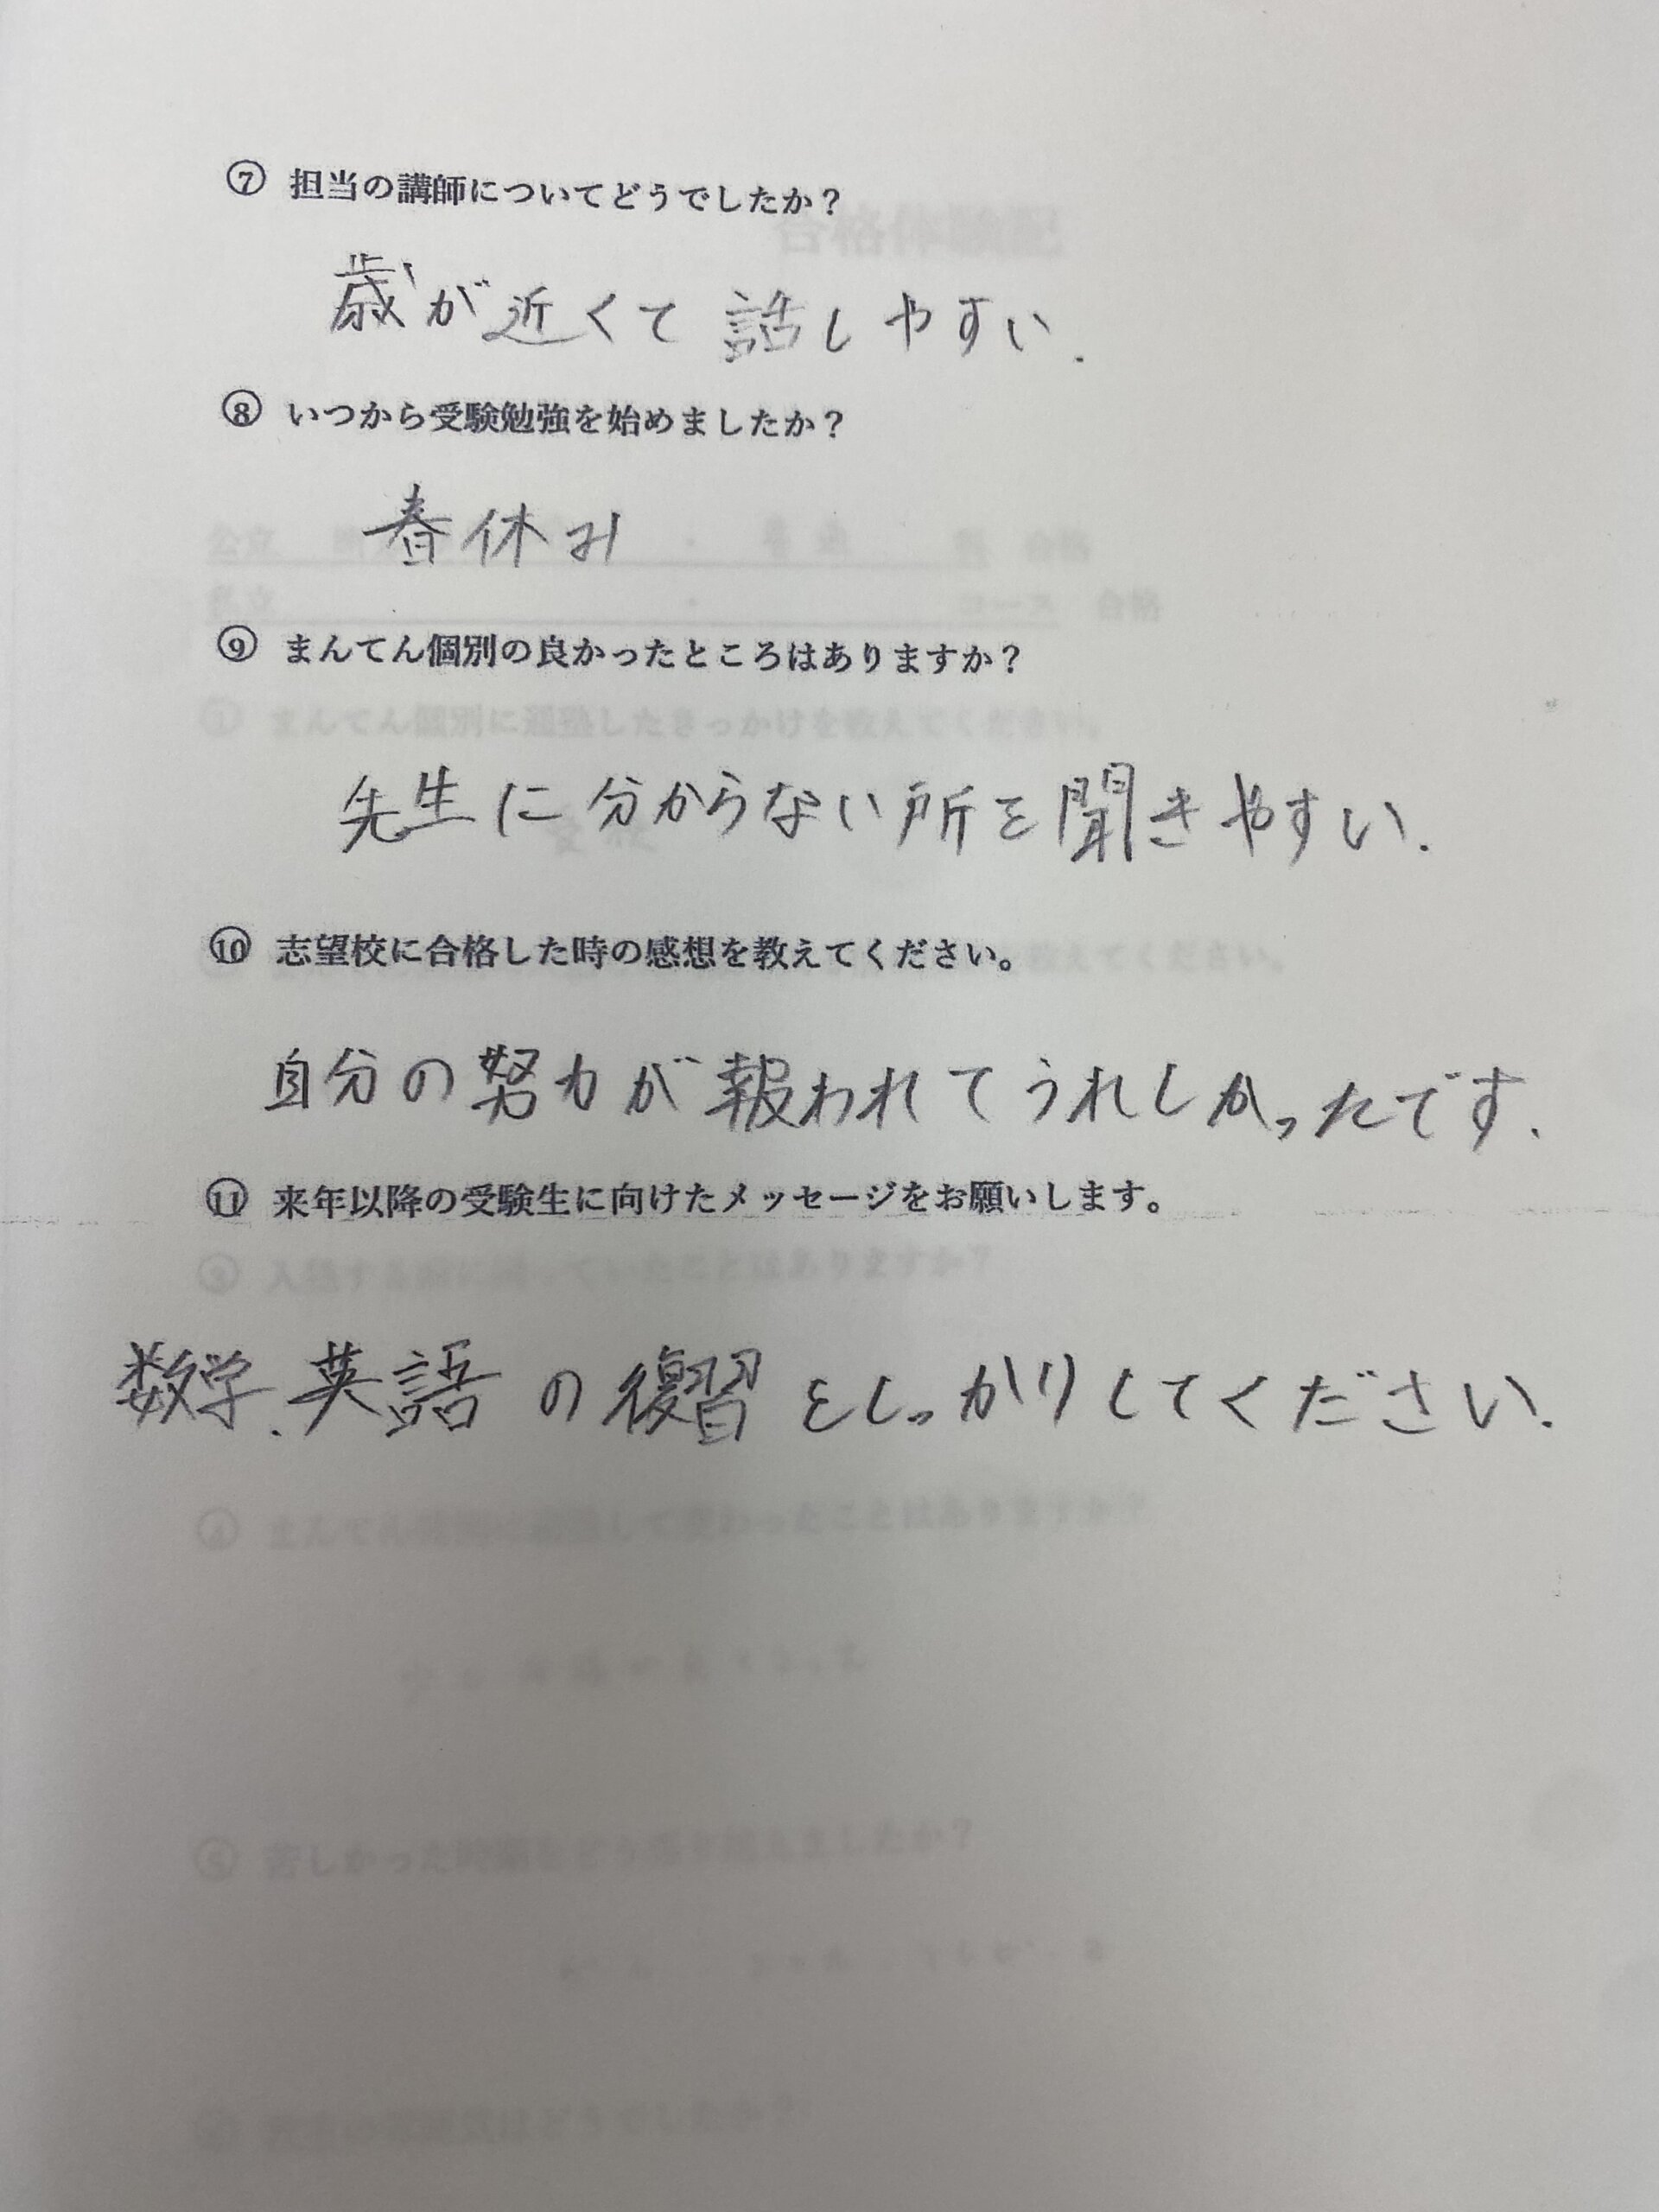 ⑦ 担当の講師についてどうでしたか？
歳が近くて話しやすい.
⑧ いつから受験勉強を始めましたか？
春休み
⑨ まんてん個別の良かったところはありますか？
先生に分からない所を聞きやすい.
⑩ 志望校に合格した時の感想を教えてください。
自分の努力が報われてうれしかったです.
⑪ 来年以降の受験生に向けたメッセージをお願いします。
数学.英語の復習をしっかりしてください.